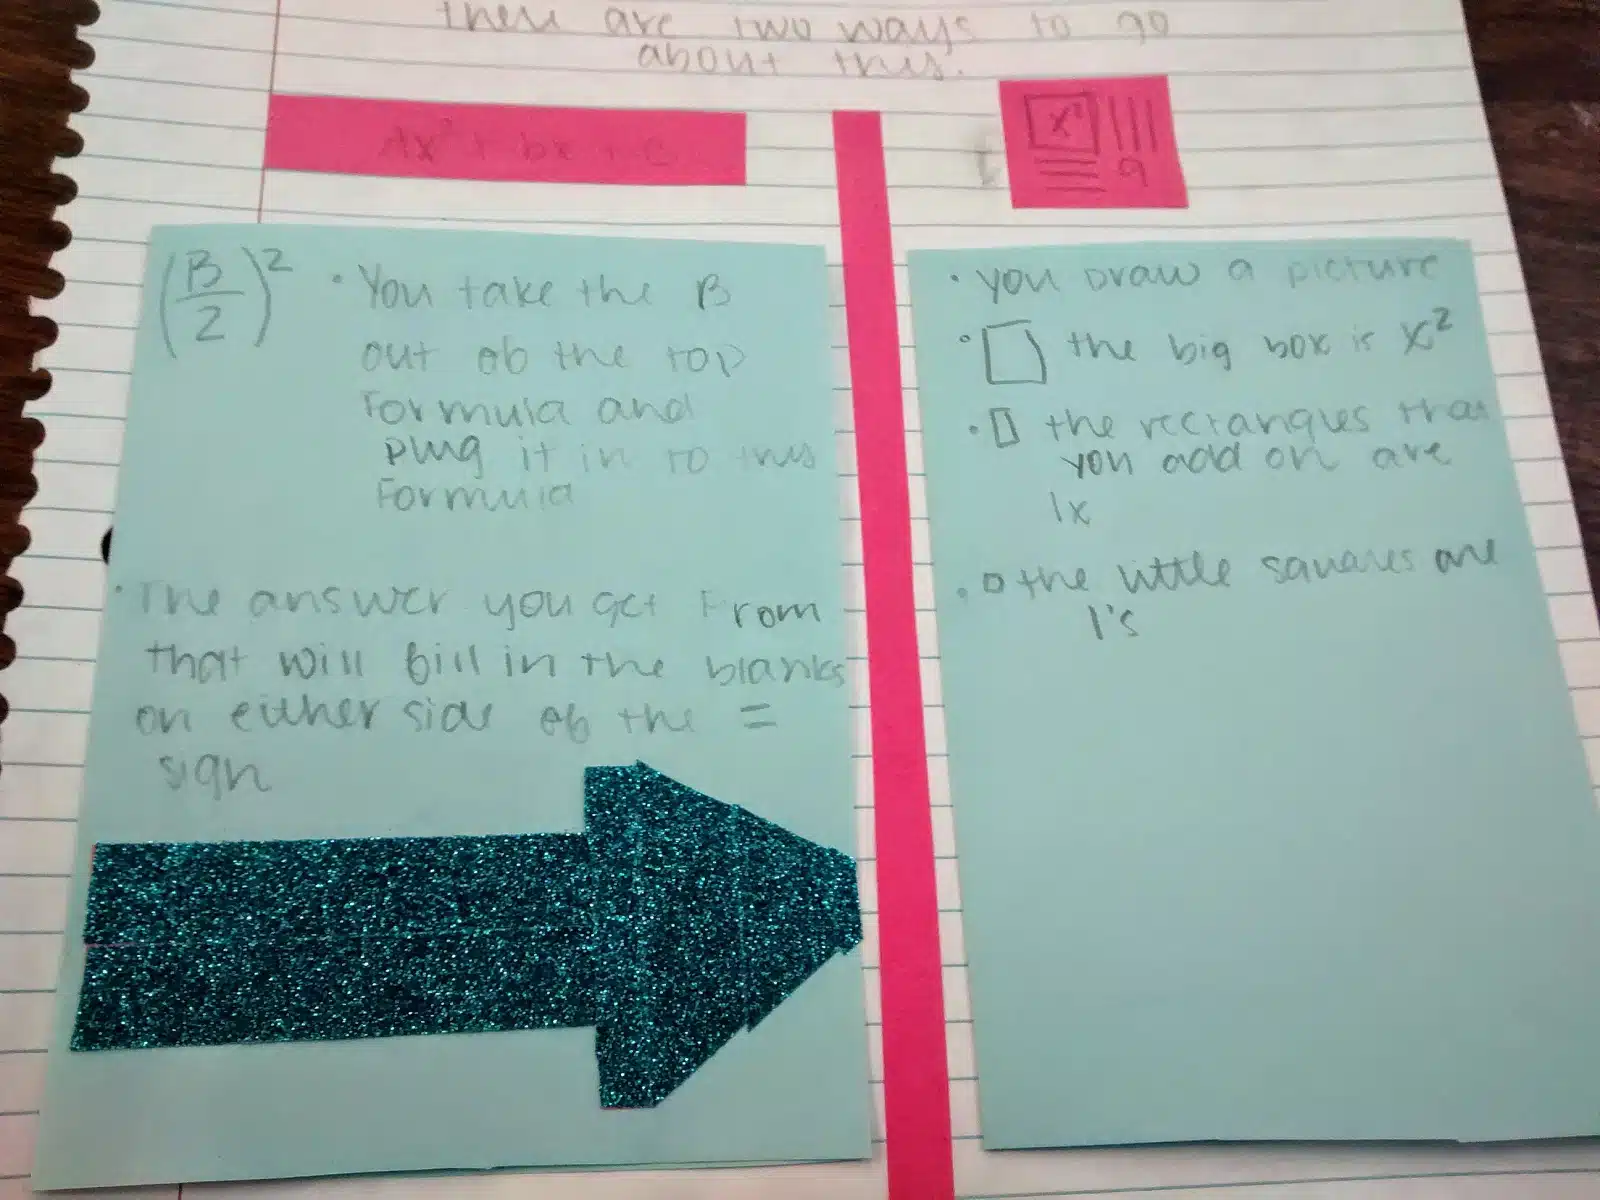 there are two ways to go
about this.
Ax² + bx + c
x²
9
(B/2)²
• You take the B
out of the top
Formula and
plug it in to this
Formula
• The answer you get From
that will fill in the blanks
on either side of the =
sign
• you Draw a picture
• the big box is x²
• the rectangles that
you add on are
1x
• the little squares are
1's